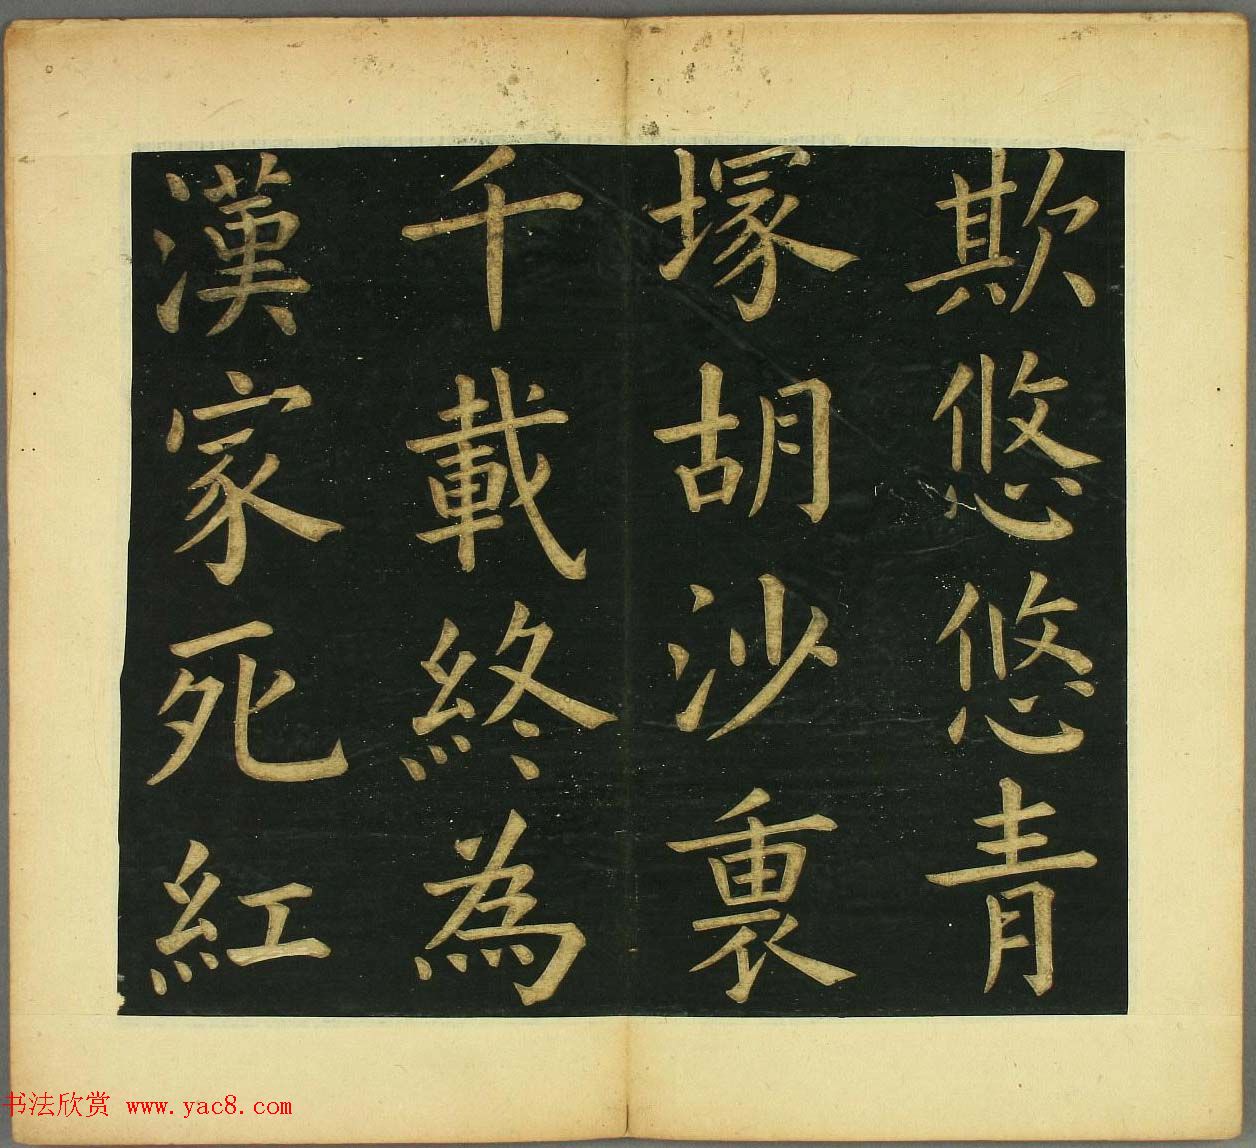 欺悠悠青
塚胡沙裏
千載終為
漢家死紅
书法欣赏 www.yac8.com